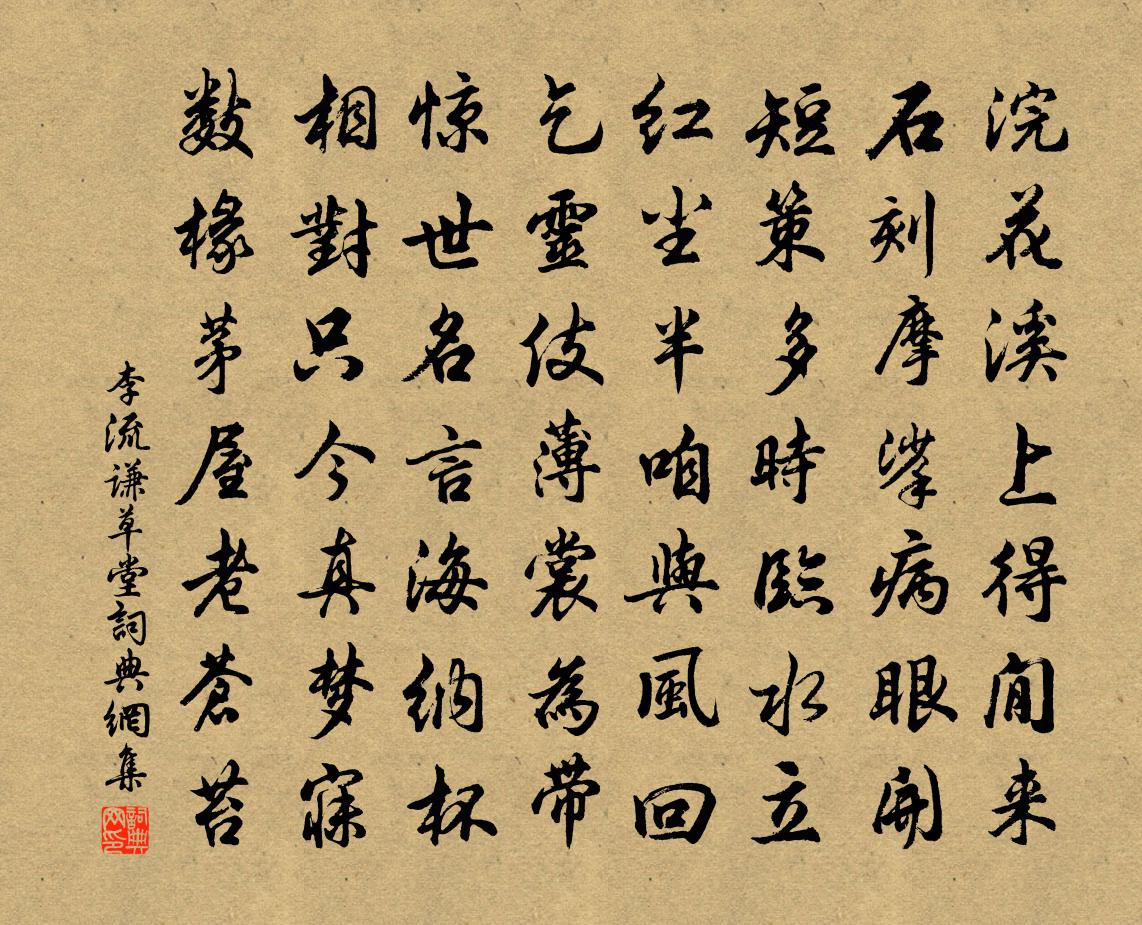 浣花溪上得闲来
石刻摩挲病眼開
短策多時臨水立
红尘半咱與風回
乞靈伎薄裳為带
惊世名言海纳杯
相對只今真梦寐
数椽茅屋老蒼苔
李流谦草堂詞典網集
詞典网印